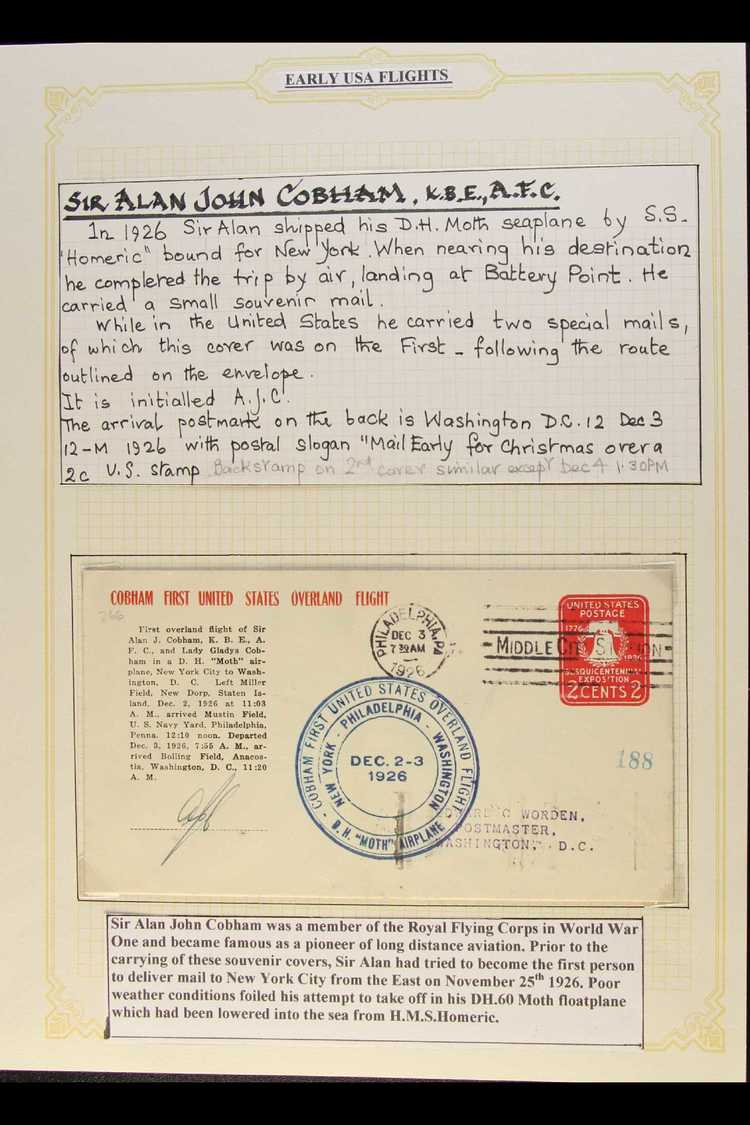 EARLY USA FLIGHTS
SIR ALAN JOHN COBHAM, K.B.E., A.F.C.
In 1926 Sir Alan shipped his D.H. Moth seaplane by S.S.
"Homeric" bound for New York. When nearing his destination
he completed the trip by air, landing at Battery Point. He
carried a small souvenir mail.
While in the United States he carried two special mails,
of which this cover was on the First - following the route
outlined on the envelope.
It is initialled A.J.C.
The arrival postmark on the back is Washington D.C. 12 Dec 3
12-M 1926 with postal slogan "Mail Early for Christmas over a
2c U.S. stamp Backstamp on 2nd cover similar except Dec 4 1.30PM
COBHAM FIRST UNITED STATES OVERLAND FLIGHT
266
First overland flight of Sir
Alan J. Cobham, K. B. E., A.
F. C., and Lady Gladys Cob-
ham in a D. H. "Moth" air-
plane, New York City to Wash-
ington, D. C. Left Miller
Field, New Dorp, Staten Is-
land, Dec. 2, 1926 at 11:03
A. M., arrived Mustin Field,
U. S. Navy Yard, Philadelphia,
Penna. 12:10 noon. Departed
Dec. 3, 1926, 7:55 A. M., ar-
rived Bolling Field, Anacos-
tia, Washington, D. C., 11:20
A. M.
PHILADELPHIA, PA
DEC 3
7 39AM
1926
MIDDLE CITY STATION
UNITED STATES
POSTAGE
1776 1926
SESQUICENTENNIAL
EXPOSITION
2 CENTS 2
COBHAM FIRST UNITED STATES OVERLAND FLIGHT
NEW YORK - PHILADELPHIA - WASHINGTON
DEC. 2-3
1926
D. H. "MOTH" AIRPLANE
188
EDWARD C WORDEN,
POSTMASTER,
WASHINGTON, D.C.
Sir Alan John Cobham was a member of the Royal Flying Corps in World War
One and became famous as a pioneer of long distance aviation. Prior to the
carrying of these souvenir covers, Sir Alan had tried to become the first person
to deliver mail to New York City from the East on November 25th 1926. Poor
weather conditions foiled his attempt to take off in his DH.60 Moth floatplane
which had been lowered into the sea from H.M.S.Homeric.